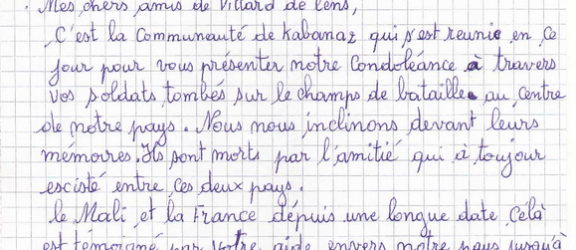 Mes chers amis de Villard de lens,
C'est la Communauté de Kabanaz qui s'est reunie en ce
jour pour vous présenter notre Condoléance à travers
vos soldats tombés sur le champs de bataille au centre
de notre pays. Nous nous inclinons devant leurs
mémoires. Ils sont morts par l'amitié qui à toujour
escisté entre ces deux pays.
le Mali et la France dépuis une longue date célà
est témoigné par votre aide envers notre pays jusqu'à